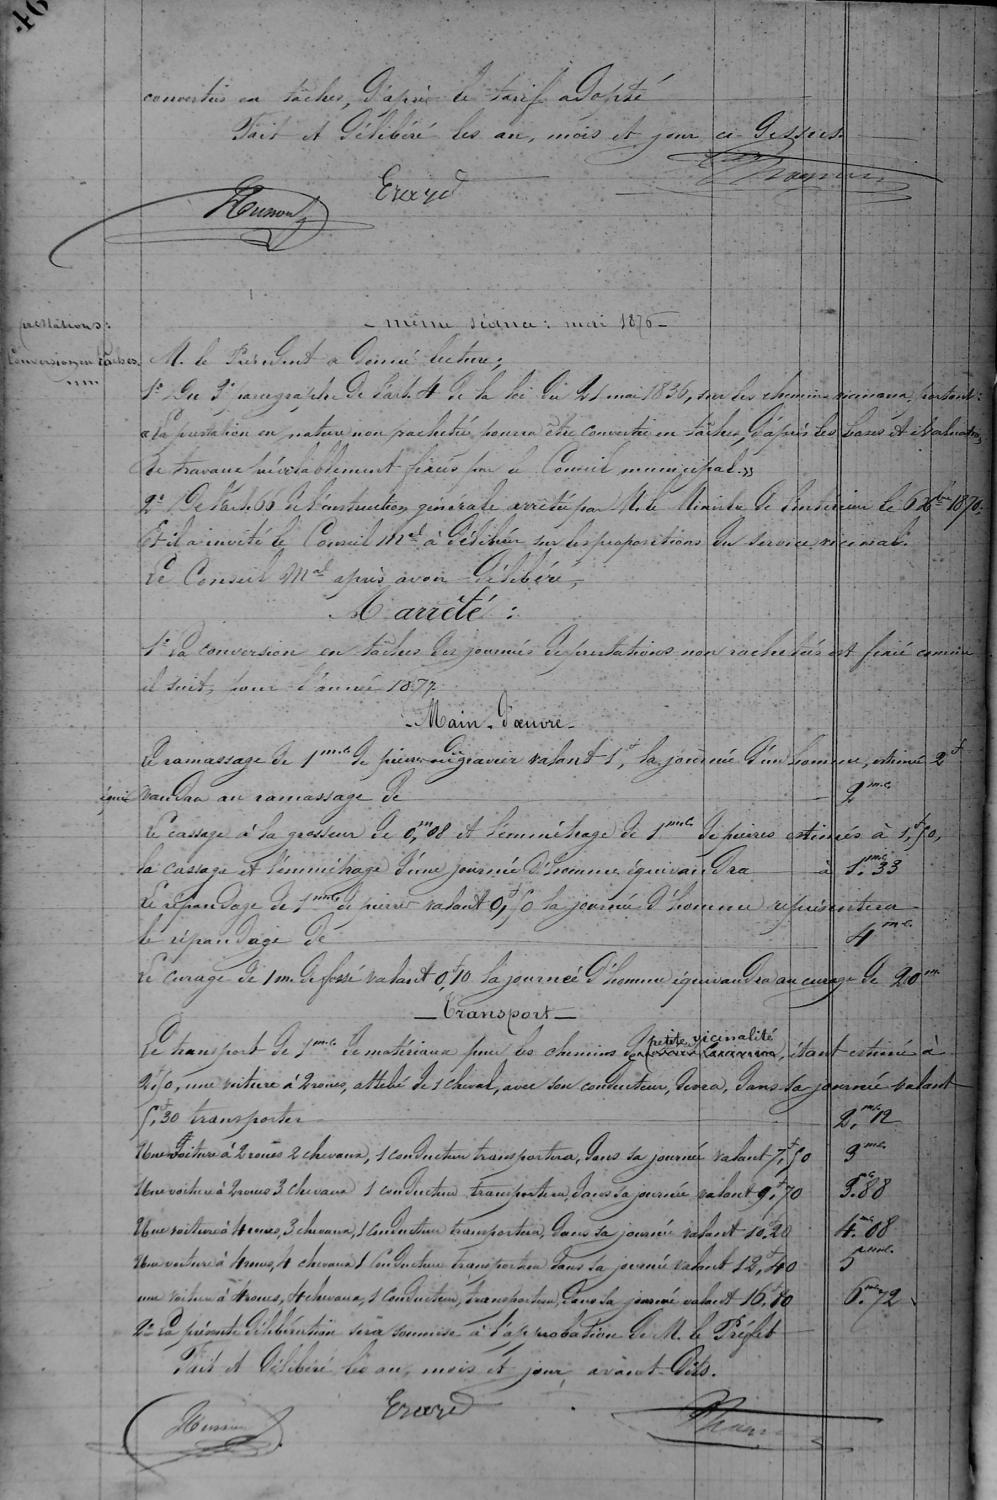 46
convertis en tâches, d'après le tarif adopté
Fait et délibéré les an, mois et jour ci dessus.
Erard
Husson
- même séance : mai 1876 -
prestations :
Conversion en tâches.
M. le Président a donné lecture ;
1° Du 3e paragraphe de l'art. 4 de la loi du 21 mai 1836, sur les chemins vicinaux, portant :
« La prestation en nature non rachetée pourra être convertie en tâches, d'après les bases et évaluations
de travaux préalablement fixés par le Conseil municipal. »
2° De l'art. 66 de l'instruction générale arrêtée par M. le Ministre de l'intérieur le 6 Xbre 1870.
Et il a invité le Conseil Mal à délibérer sur les propositions du service vicinal.
Le Conseil Mal après avoir délibéré,
A arrêté :
1° La conversion en tâches des journées de prestations non rachetées est fixée comme
il suit, pour l'année 1877
- Main-d'œuvre -
Le ramassage de 1 m.c. de pierres ou gravier valant 1f, la journée d'un homme, estimée 2f
équivaudra au ramassage de 2 m.c.
Le cassage à la grosseur de 0,m08 et l'emmétrage de 1 m.c. de pierres estimés à 1,f50,
le cassage et l'emmétrage d'une journée d'homme équivaudra à 1.m.c.33
Le répandage de 1 m.c. de pierres valant 0,f50 la journée d'homme représentera
le répandage de 4 m.c.
Le curage de 1 m. de fossé valant 0,f10 la journée d'homme équivaudra au curage de 20 m.
- Transport -
Le transport de 1 m.c. de matériaux pour les chemins de petite vicinalité, étant estimé à
2f50, une voiture à 2 roues, attelée de 1 cheval, avec son conducteur, devra, dans sa journée valant
5,f30 transporter 2,m.c.12
Une voiture à 2 roues 2 chevaux, 1 conducteur transportera, dans sa journée valant 7,f50 3 m.c.
Une voiture à 2 roues 3 chevaux 1 conducteur transportera, dans sa journée valant 9,f70 3.88
Une voiture à 4 roues, 3 chevaux, 1 conducteur transportera, dans sa journée valant 10.20 4.mc08
Une voiture à 4 roues, 4 chevaux 1 Conducteur transportera dans sa journée valant 12,f40 5 m.c.
une voiture à 4 roues, 4 chevaux, 1 Conducteur, transportera, dans sa journée valant 16,f80 6.mc72
2° La présente délibération sera soumise à l'approbation de M. le Préfet
Fait et délibéré les an, mois et jour, avant dits.
Husson
Erard